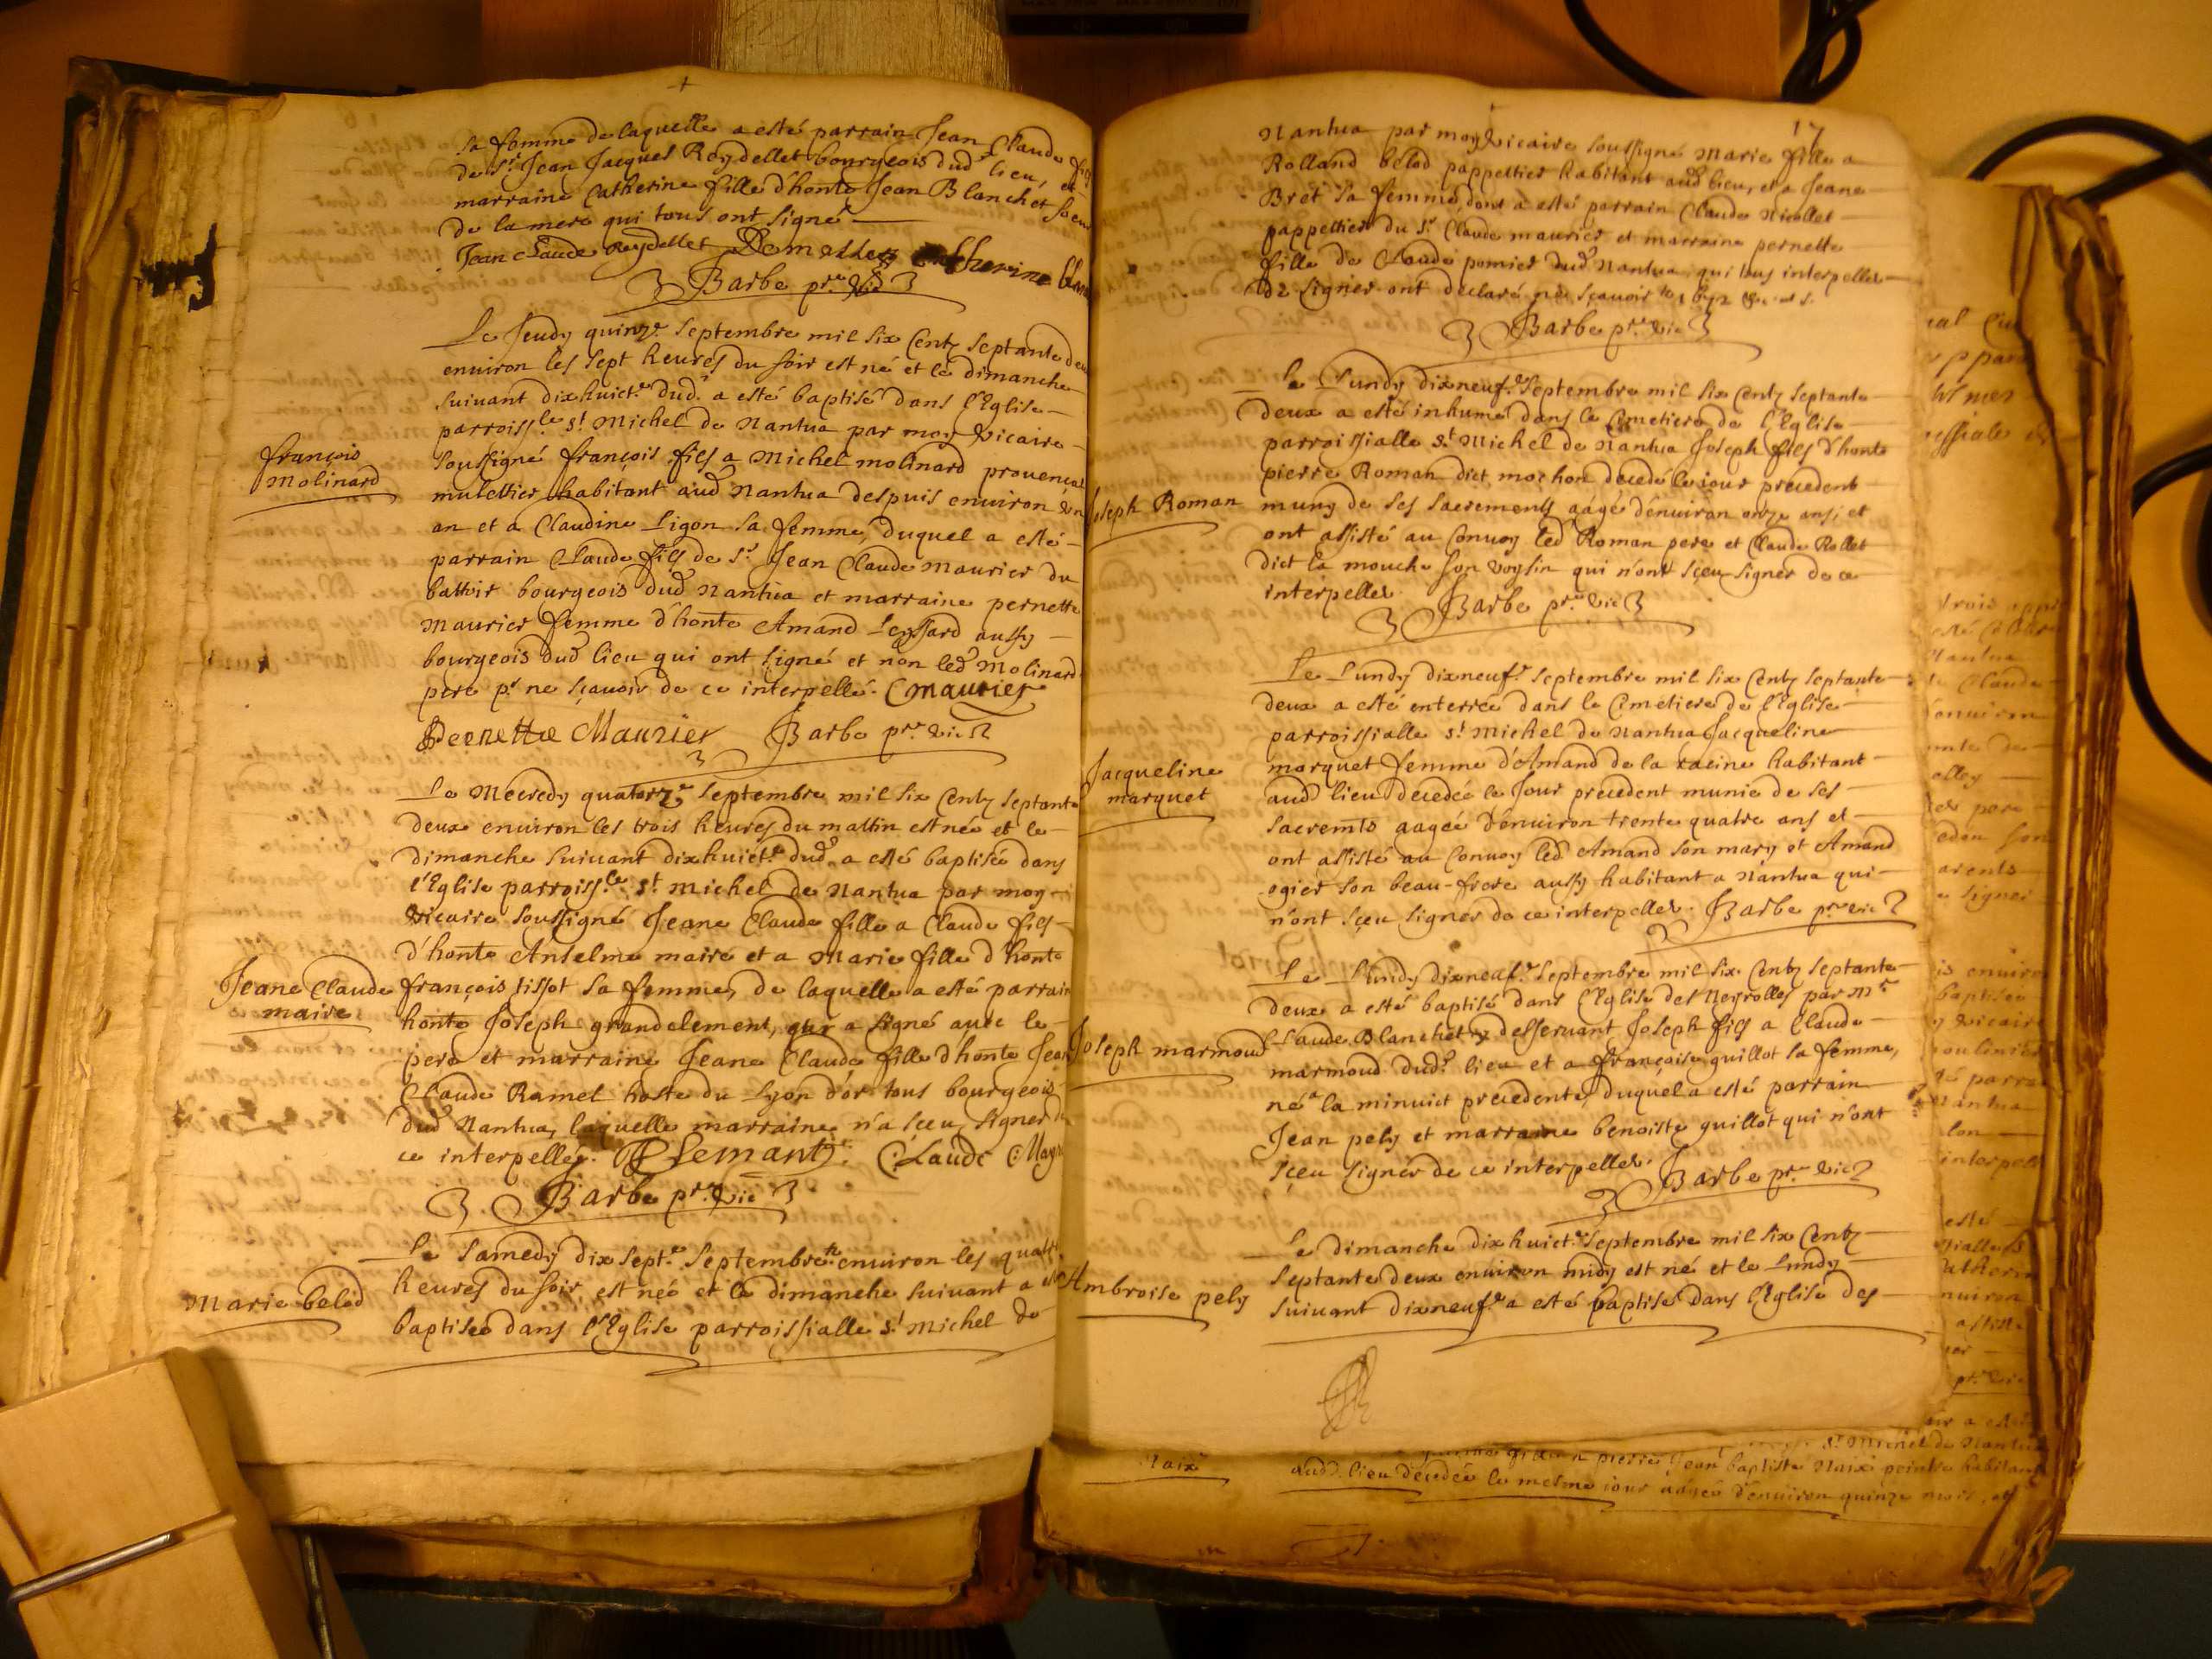 sa femme de laquelle a esté parrain Jean Claude fils
de Sr Jean Jacques Reydellet bourgeois dud lieu, et
marraine Catherine fille d'honte Jean Blanchet soeur
de la mere qui tous ont signé
Jean Claude Reydellet Catherine
Barbe pr. vic
Le Jeudy quinze septembre mil six centz septante deux
enuiron les sept heures du soir est né et le dimanche
suiuant dixhuict.e dud. a esté baptisé dans l'Eglise
parroiss.le st Michel de Nantua par moy vicaire
françois
molinard
soussigné françois fils a Michel molinard prouençal
mulettier habitant aud Nantua despuis enuiron vn
an et a Claudine Ligon sa femme, duquel a esté
parrain Claude fils de Sr Jean Claude Maurier du
battoir bourgeois dud Nantua et marraine pernette
Maurier femme d'honte Amand Leyssard aussy
bourgeois dud lieu qui ont signé et non led molinard
pere pr ne sçauoir de ce interpellé. CMaurier
Pernette Maurier Barbe pr. vic
Le Mecredy quatorze septembre mil six centz septante
deux enuiron les trois heures du mattin est née et le
dimanche suiuant dixhuict.e dud. a esté baptisée dans
l'Eglise parroiss.le st Michel de Nantua par moy
vicaire soussigné Jeane Claude fille a Claude fils
d'honte Anselme maire et a Marie fille d'honte
Jeane Claude
maire
françois tissot sa femme, de laquelle a esté parrain
honte Joseph grandclement, qui a signé auec le
pere et marraine Jeane Claude fille d'honte Jean
Claude Ramel hoste du Lyon d'or tous bourgeois
dud Nantua, laquelle marraine n'a sceu signer de
ce interpellée. Claude
Barbe pr. vic
Le Samedy dix sept.e septembre enuiron les quatre
Marie belod
heures du soir est née et le dimanche suiuant a esté
baptisée dans l'Eglise parroissialle st Michel de
17
Nantua par moy vicaire soussigné Marie fille a
Rolland belod pappettier habitant aud lieu, et a Jeane
Bret sa femme, dont a esté parrain Claude Nicollet
pappettier du Sr Claude maurier et marraine pernette
fille de Claude pomier dud Nantua qui tous interpellez
de signer ont declaré ne sçauoir
Barbe pr. vic
Le Lundy dixneuf.e septembre mil six centz septante
deux a esté inhumé dans le Cimetiere de l'Eglise
parroissialle st Michel de Nantua Joseph fils d'honte
pierre Roman dict mochon decedé le iour precedent
Joseph Roman
muny de ses sacrements aagé d'enuiron onze ans, et
ont assisté au conuoy led Roman pere et Claude Rollet
dict la mouche son voysin qui n'ont sceu signer de ce
interpellez. Barbe pr. vic
Le Lundy dixneuf.e septembre mil six centz septante
deux a esté enterrée dans le Cimetiere de l'Eglise
parroissialle st Michel de Nantua Jacqueline
Jacqueline
marquet
marquet femme d'Amand de la racine habitant
aud lieu decedée le Jour precedent munie de ses
sacremts aagée d'enuiron trente quatre ans et
ont assisté au conuoy led Amand son mary et Amand
ogier son beau-frere aussy habitant a Nantua qui
n'ont sceu signer de ce interpellez. Barbe pr. vic
Le Lundy dixneuf.e septembre mil six centz septante
deux a esté baptisé dans l'Eglise des Neyrolles par Mr
Joseph marmoud
Claude Blanchet desseruant Joseph fils a Claude
marmoud dud. lieu et a françoise guillot sa femme,
né a la minuict precedente, duquel a esté parrain
Jean pely et marraine benoiste guillot qui n'ont
sceu signer de ce interpellez. Barbe pr. vic
Le dimanche dixhuict.e septembre mil six centz
septante deux enuiron midy est né et le Lundy
Ambroise pely
suiuant dixneuf.e a esté baptisé dans l'Eglise des
st Michel de Nantua
pierre Jean baptiste Naix peintre habitant
Naix
aud. lieu decedée le mesme iour aagée d'enuiron quinze mois, et